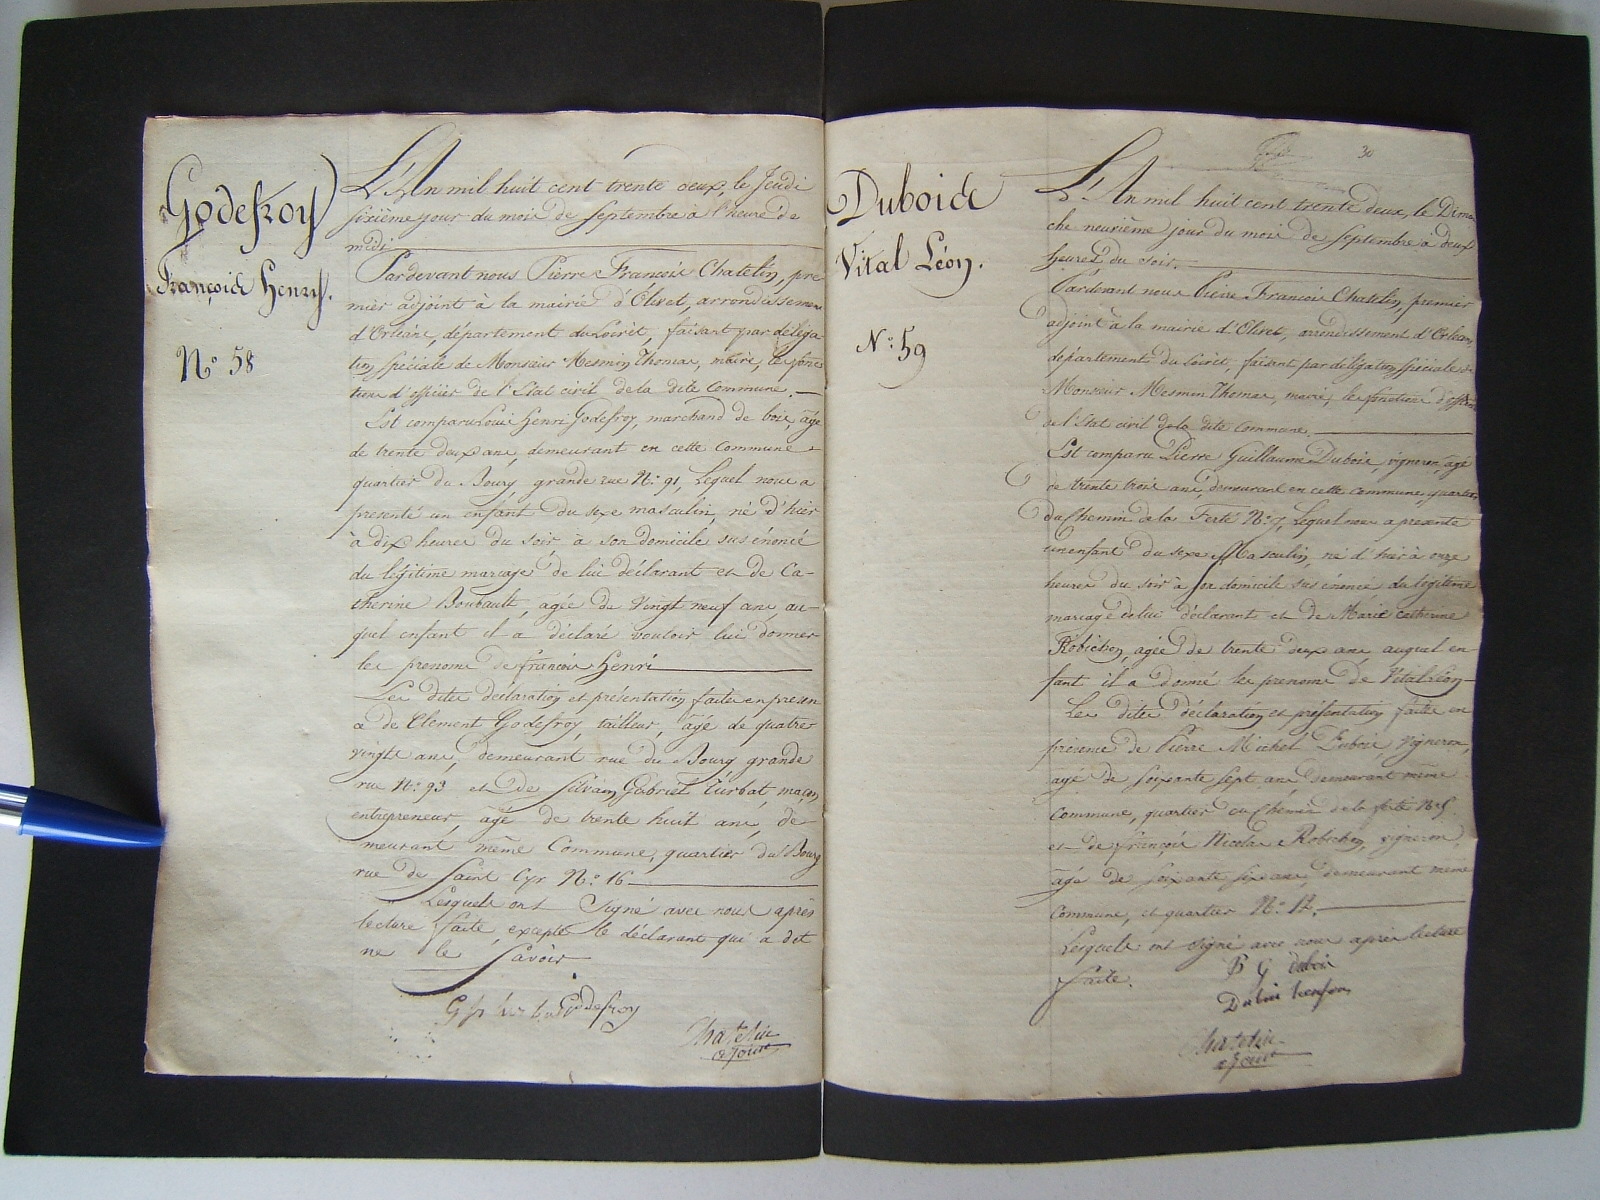 Godefroy
François Henry.
N.° 58
L'An mil huit cent trente deux, le Jeudi
sixième jour du mois de septembre à l'heure de
midi
Pardevant nous Pierre François Chatelin, pre
mier adjoint à la mairie d'Olivet, arrondissement
d'Orléans, département du Loiret, faisant par déléga
tion spéciale de Monsieur Mesmin Thomas, maire, les fonc
tions d'officier de l'Etat civil de la dite Commune.
Est comparu Louis Henri Godefroy, marchand de bois, âgé
de trente deux ans, demeurant en cette Commune
quartier du Bourg grande rue N.° 91, Lequel nous a
presenté un enfant du sexe masculin, né d'hier
à dix heures du soir, à son domicile sus énoncé
du légitime mariage de lui déclarant et de Ca-
therine Boubault, âgée de vingt neuf ans, au-
quel enfant il a déclaré vouloir lui donner
les prénoms de françois Henri
Les dites déclaration et présentation faites en presen
ce de Clement Godefroy, tailleur, âgé de quatre
vingts ans, demeurant rue du Bourg grande
rue N.° 93 et de Silvain Gabriel Turbat, maçon
entrepreneur, âgé de trente huit ans, de
meurant même Commune, quartier du Bourg
rue de Saint Cyr N.° 16
Lesquels ont Signé avec nous après
lecture faite, excepté le déclarant qui a dit
ne le Savoir
Godefroy
Chatelin
adjoint
30
Dubois
Vital Léon.
N.° 59
L'An mil huit cent trente deux, le Diman
che neuvième jour du mois de Septembre à deux
heures du soir.
Pardevant nous Pierre François Chatelin, premier
adjoint à la mairie d'Olivet, arrondissement d'Orléans,
département du Loiret, faisant par délégation spéciale de
Monsieur Mesmin Thomas, maire, les fonctions d'officier
de l'Etat civil de la dite Commune.
Est comparu Pierre Guillaume Dubois, vigneron, âgé
de trente trois ans, demeurant en cette commune, quartier
du Chemin de la Ferté N.° 7, Lequel nous a présenté
un enfant du sexe Masculin, né d'hier à onze
heures du soir à son domicile sus énoncé du légitime
mariage de lui déclarant et de Marie Catherine
Robichon, agée de trente deux ans, auquel en-
fant il a donné les prenoms de Vital Léon
Les dites déclaration et présentation faites en
présence de Pierre Michel Dubois, vigneron,
agé de soixante sept ans, demeurant même
Commune, quartier du Chemin de la ferté N.° 5
et de françois Nicolas Robichon, vigneron,
âgé de soixante six ans, demeurant même
Commune, et quartier N.° 12.
Lesquels ont signé avec nous après lecture
faite.
P G dubois
Dubois
Chatelin
adjoint